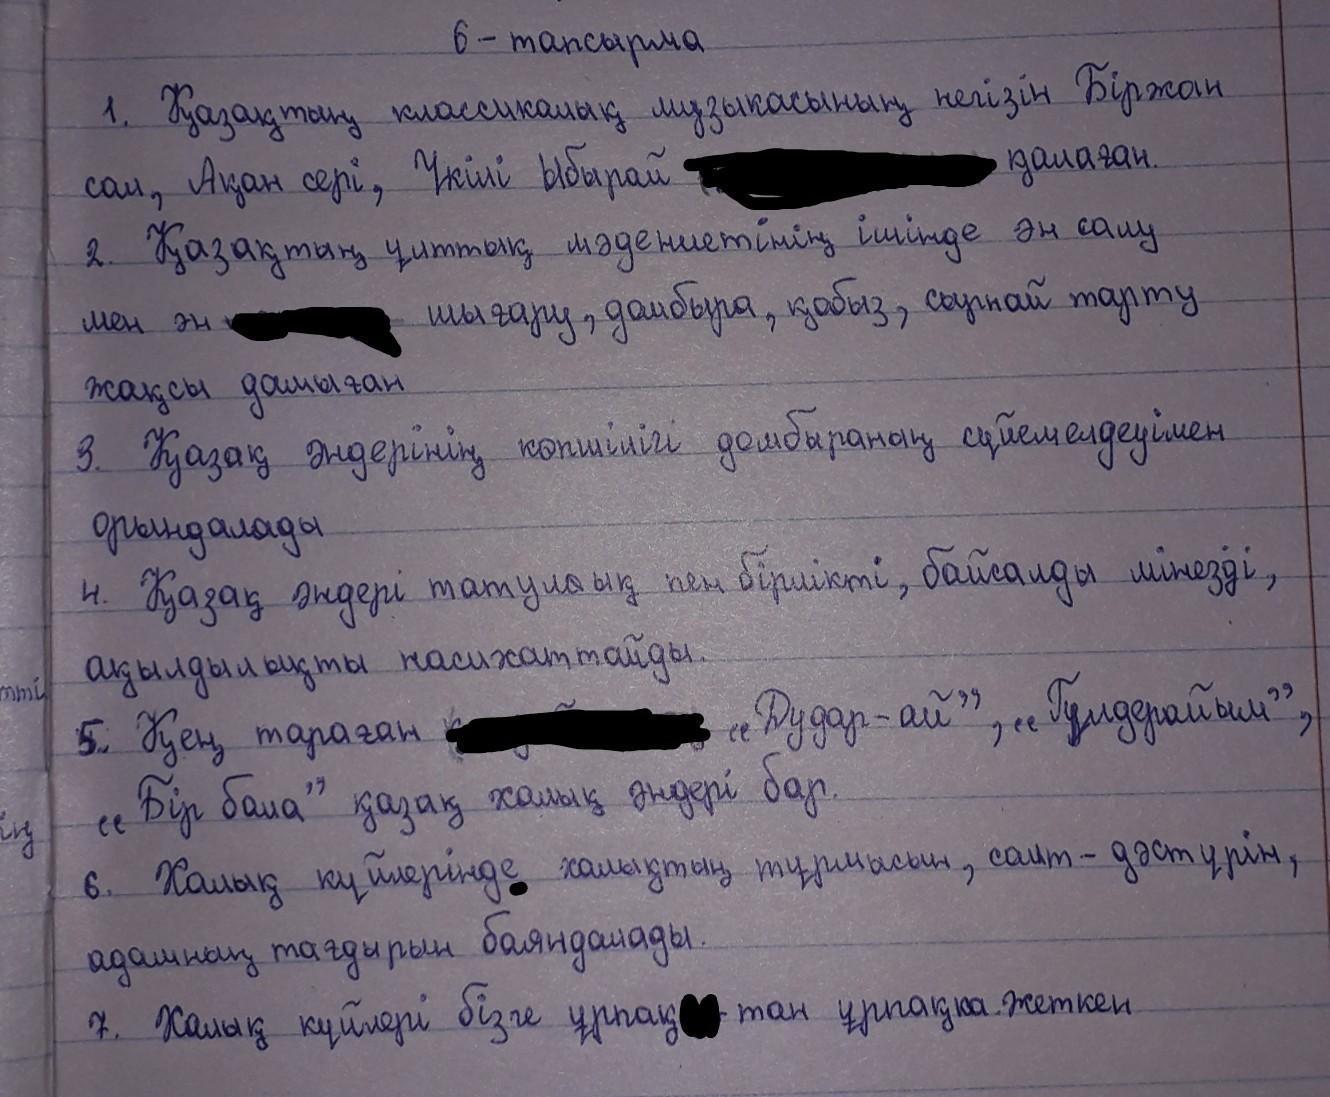 6 - тапсырма
1. Қазақтың классикалық музыкасының негізін Біржан
сал, Ақан сері, Үкілі Ыбырай қалаған.
2. Қазақтың ұлттық мәдениетінің ішінде ән салу
мен ән шығару, домбыра, қобыз, сырнай тарту
жақсы дамыған
3. Қазақ әндерінің көпшілігі домбыраның сүйемелдеуімен
орындалады
4. Қазақ әндері татулық пен бірлікті, байсалды мінезді,
ақылдылықты насихаттайды.
5. Кең тараған „Дудар-ай”, „Гүлдерайым”,
„Бір бала” қазақ халық әндері бар.
6. Халық күйлерінде халықтың тұрмысын, салт-дәстүрін,
адамның тағдырын баяндалады.
7. Халық күйлері бізге ұрпақ-тан ұрпаққа жеткен